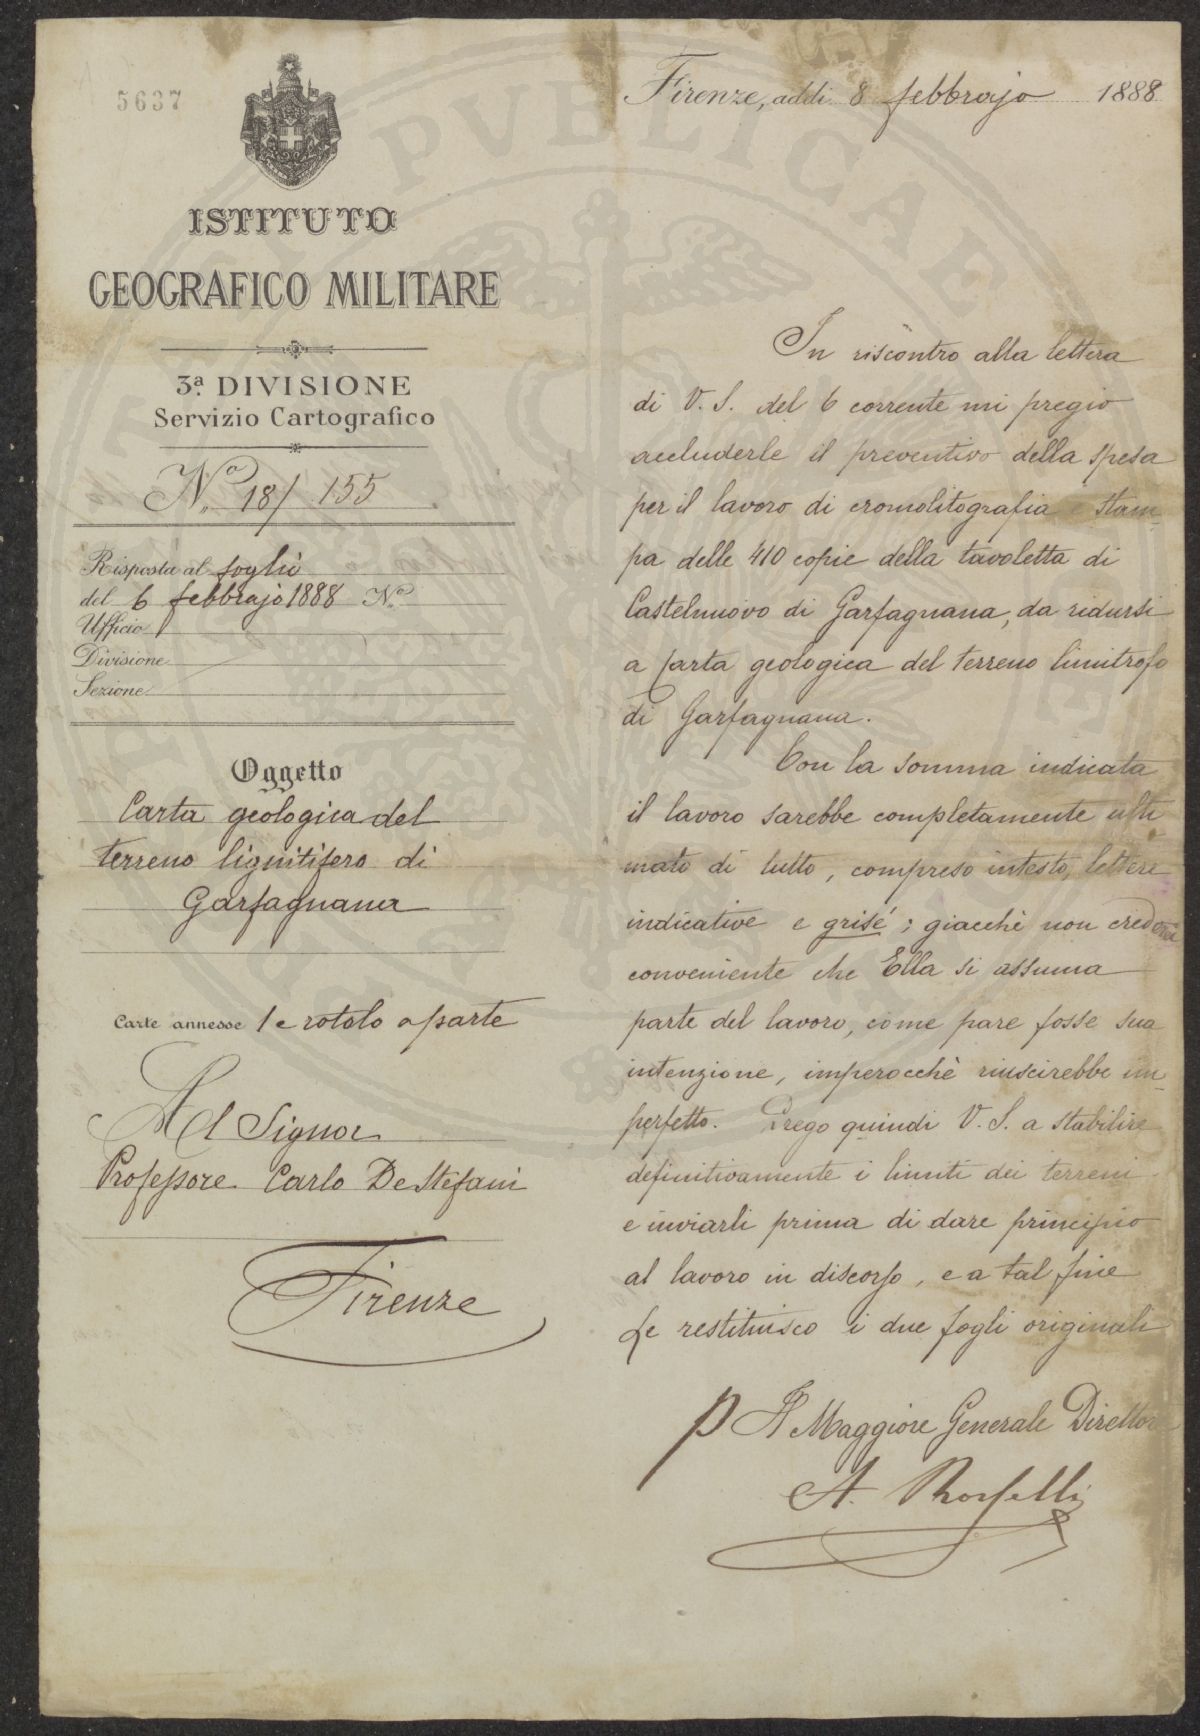 5637
ISTITUTO
GEOGRAFICO MILITARE
3ª DIVISIONE
Servizio Cartografico
N.° 18/155
Risposta al foglio
del 6 febbrajo 1888 N.°
Ufficio
Divisione
Sezione
Oggetto
Carta geologica del
terreno lignitifero di
Garfagnana
Carte annesse 1 e rotolo a parte
Al Signor
Professore Carlo De Stefani
Firenze
Firenze, addì 8 febbrajo 1888
In riscontro alla lettera
di V. S. del 6 corrente mi pregio
accluderle il preventivo della spesa
per il lavoro di cromolitografia e stam-
pa delle 410 copie della tavoletta di
Castelnuovo di Garfagnana, da ridursi
a carta geologica del terreno limitrofo
di Garfagnana.
Con la somma indicata
il lavoro sarebbe completamente ulti
mato di tutto, compreso intesto, lettere
indicative e grisé; giacchè non crederei
conveniente che Ella si assuma
parte del lavoro, come pare fosse sua
intenzione, imperocchè riuscirebbe im-
perfetto. Prego quindi V. S. a stabilire
definitivamente i limiti dei terreni
e inviarli prima di dare principio
al lavoro in discorso, e a tal fine
Le restituisco i due fogli originali
p Il Maggiore Generale Direttore
A. Rosselli
PVBLICAE